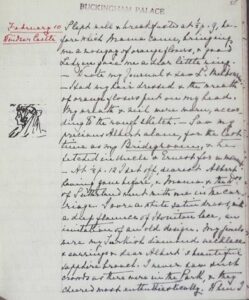 BUCKINGHAM PALACE
February 10
Windsor Castle
I slept well & breakfasted at ½ p. 9, be-
fore which Mama came, bringing
me a nosegay of orangeflowers, & good
Lehzen gave me a dear little ring.
– Wrote my Journal & to Ld. Melbourne
– Had my hair dressed & the wreath
of orangeflowers put on my head.
My wreath & veil were worn, accor-
ding to the rough sketch. – Saw my
precious Albert alone, for the last
time as my Bridegroom, & he
fetched in Uncle & Ernest for a moment.
– At ½ p. 12 I set off, dearest Albert
having gone before, – Mama & the Dss
of Sutherland about me in the car-
riage. I wore a white satin dress, with
a deep flounce of Honiton lace, an
imitation of an old design. My jewels
were my Turkish diamond necklace
& earrings & dear Albert's beautiful
sapphire brooch. I never saw such
crowds as there were in the Park, & they
cheered most enthusiastically. When I